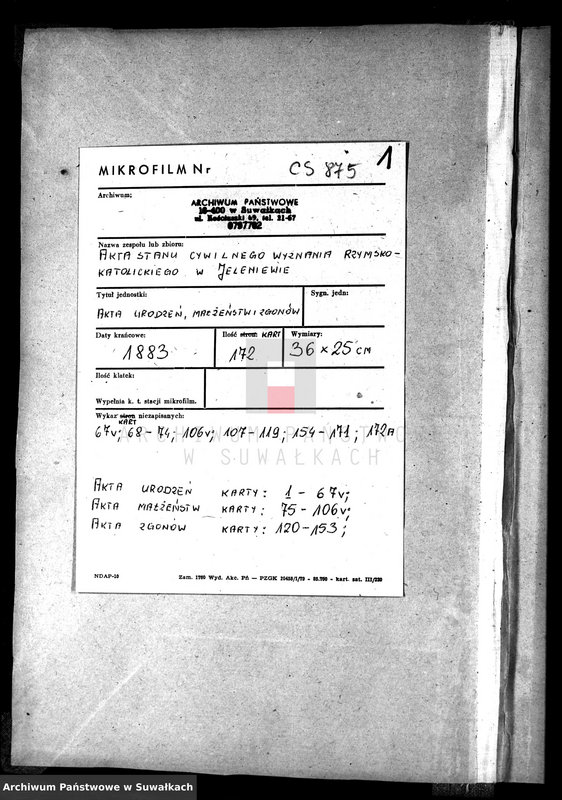 1
MIKROFILM Nr CS 875
Archiwum:
ARCHIWUM PAŃSTWOWE
16-400 w Suwałkach
ul. Kościuszki 69, tel. 21-67
0797762
Nazwa zespołu lub zbioru:
AKTA STANU CYWILNEGO WYZNANIA RZYMSKO-
KATOLICKIEGO W JELENIEWIE
Tytuł jednostki:
Sygn. jedn:
AKTA URODZEŃ, MAŁŻEŃSTW I ZGONÓW
Daty krańcowe:
Ilość stron: KART
Wymiary:
1883
172
36 x 25 CM
Ilość klatek:
Wypełnia k. t. stacji mikrofilm.
Wykaz stron niezapisanych:
KART
67v; 68-74; 106v; 107-119; 154-171; 172A
ARCHIWUM PAŃSTWOWE
W SUWAŁKACH
AKTA URODZEŃ KARTY: 1 - 67v;
AKTA MAŁŻEŃSTW KARTY: 75 - 106v;
AKTA ZGONÓW KARTY: 120-153;
NDAP-10
Zam. 1980 Wyd. Akc. Pń — PZGK
kart. sat. III/220
Archiwum Państwowe w Suwałkach